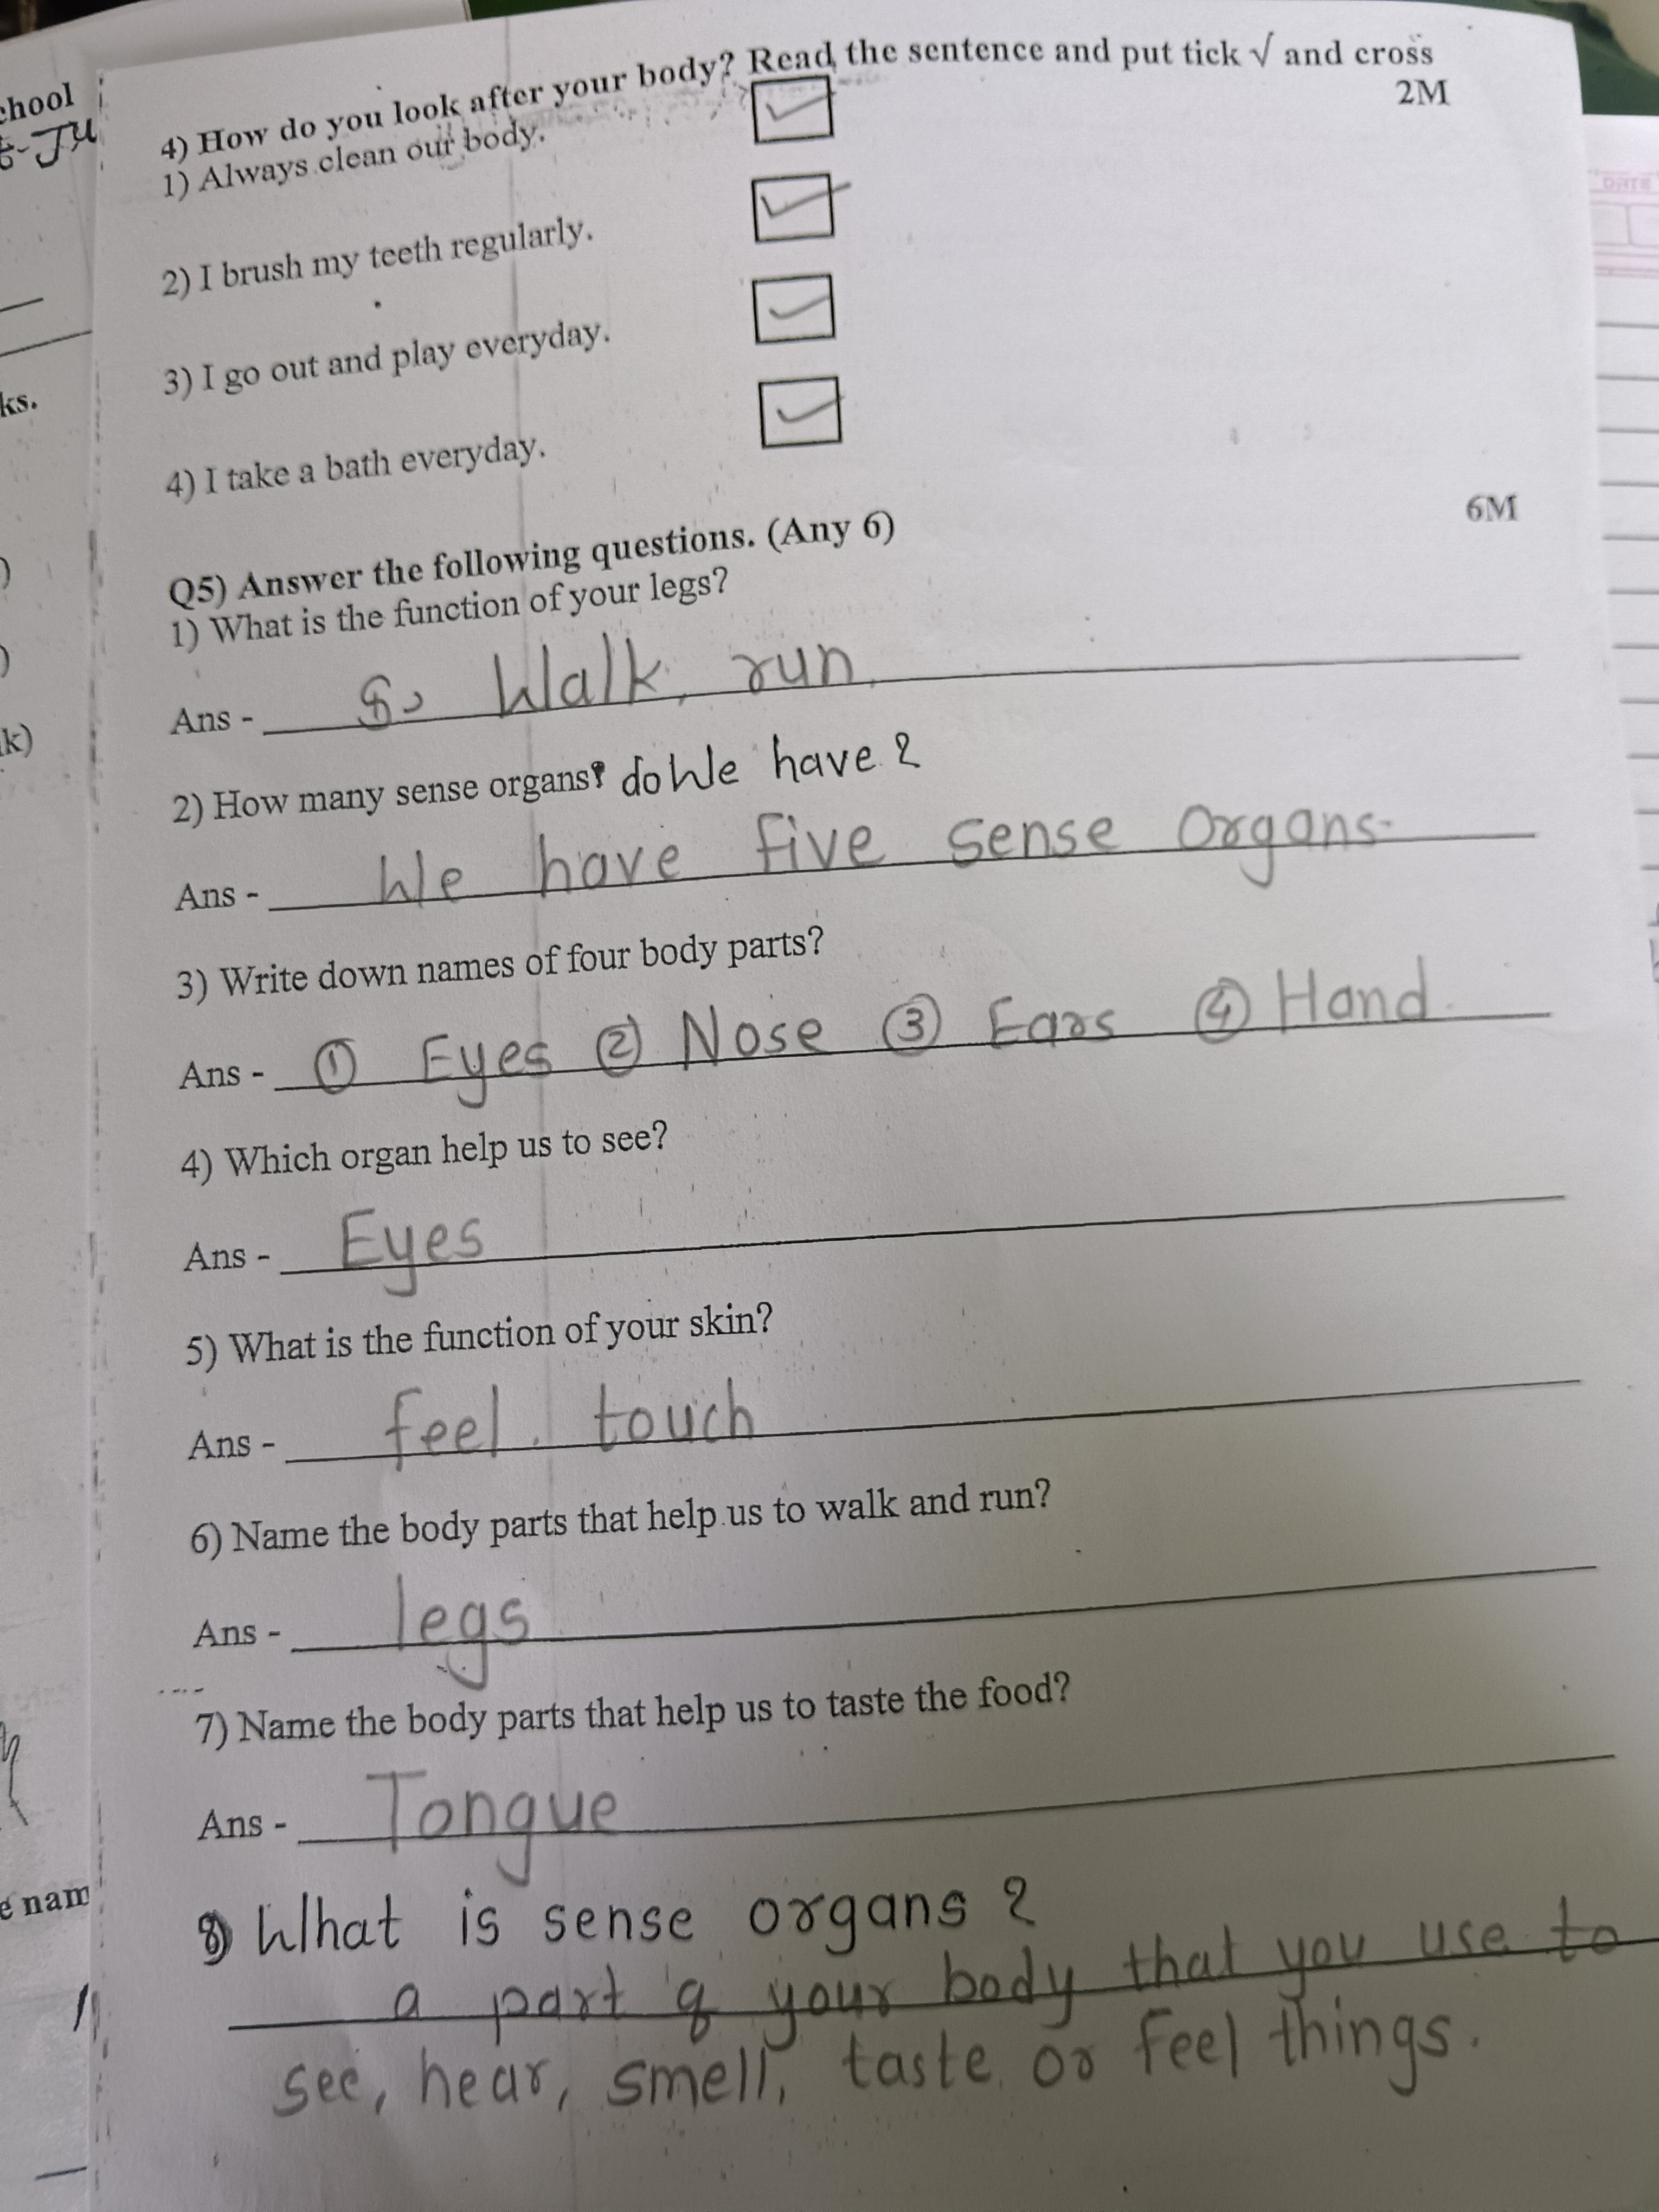 4) How do you look after your body? Read the sentence and put tick √ and cross
2M
1) Always clean our body.
2) I brush my teeth regularly.
3) I go out and play everyday.
4) I take a bath everyday.
Q5) Answer the following questions. (Any 6)
6M
1) What is the function of your legs?
Ans - Walk, run.
2) How many sense organs? do We have ?
Ans - We have five sense organs.
3) Write down names of four body parts?
Ans - ① Eyes ② Nose ③ Ears ④ Hand.
4) Which organ help us to see?
Ans - Eyes
5) What is the function of your skin?
Ans - feel, touch
6) Name the body parts that help us to walk and run?
Ans - legs
7) Name the body parts that help us to taste the food?
Ans - Tongue
8) What is sense organs ?
a part of your body that you use to
see, hear, smell, taste or feel things.
ks.
k)
e nam
DATE